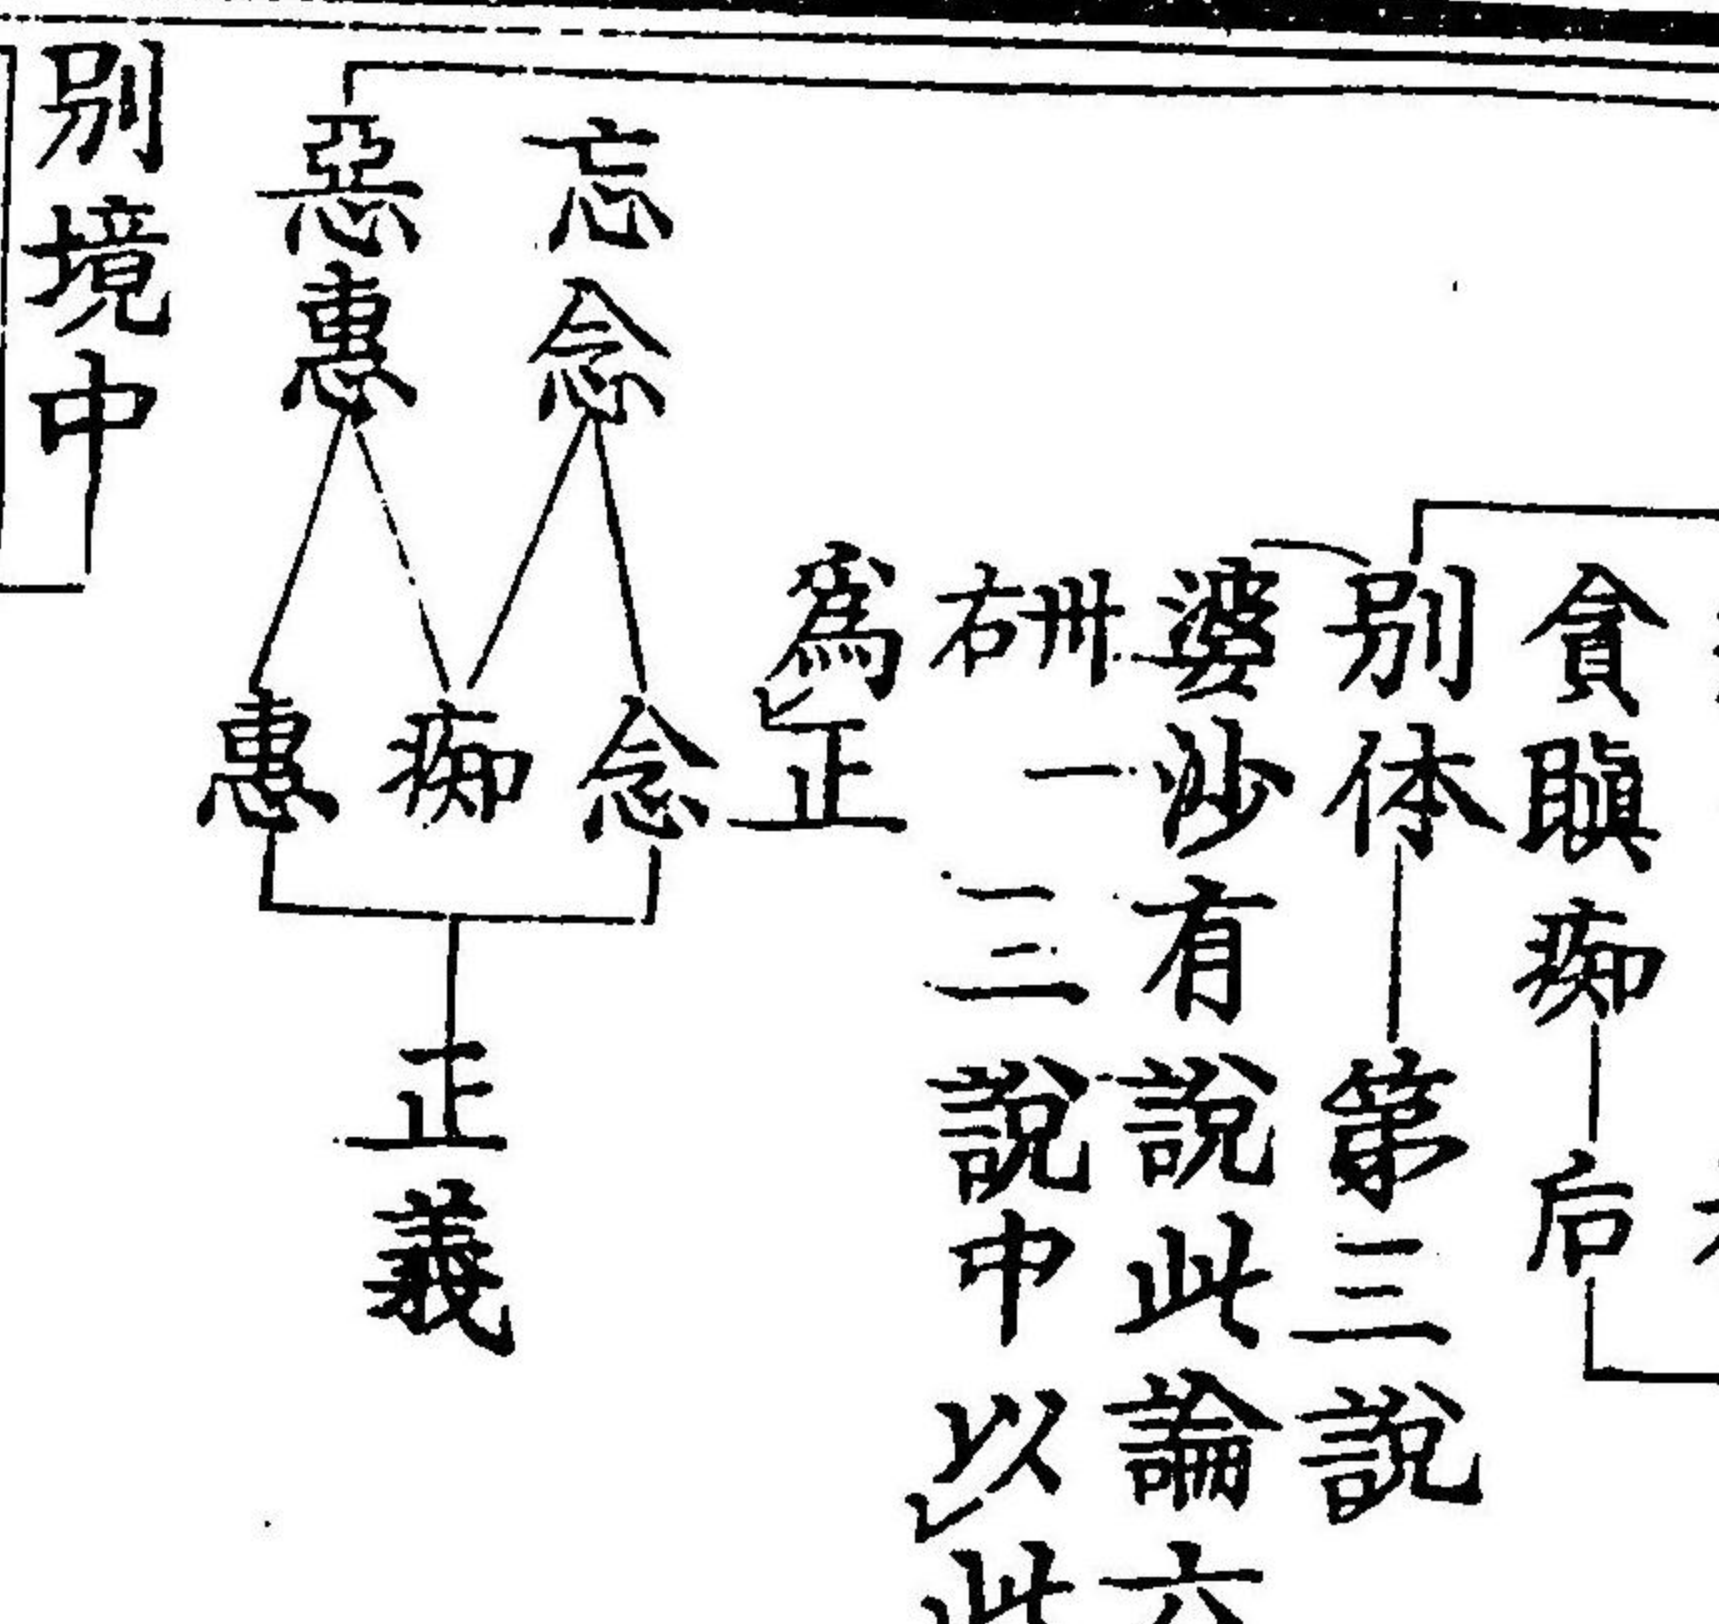 貪瞋痴
后
別体
第三説
婆沙有説此論六
卅一
右二三説中以此
爲正
忘念
惡惠
念
痴
惠
正義
別境中